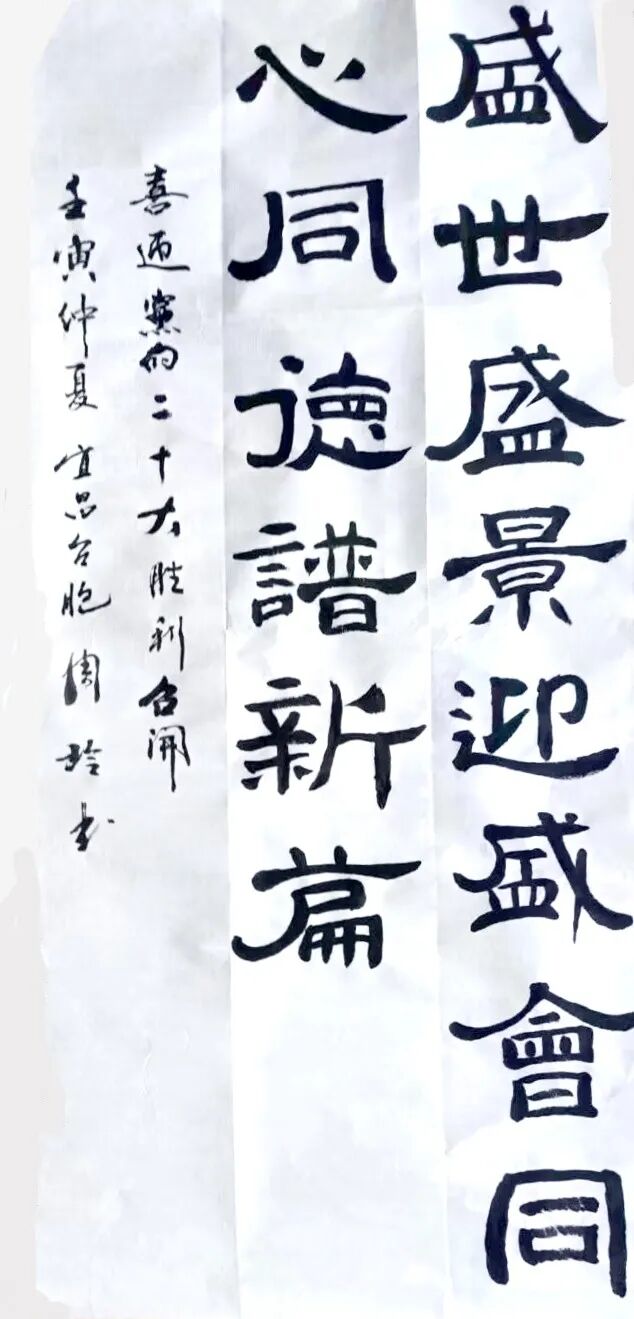 盛世盛景迎盛會同
心同德譜新篇
喜迎黨的二十大胜利召開
壬寅仲夏 宜昌台胞周玲书